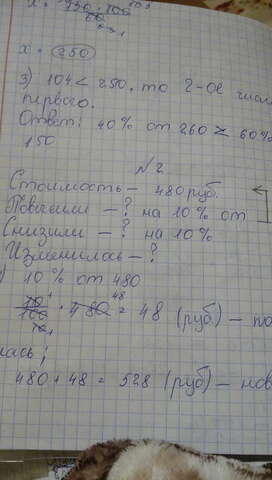 x = 250
3) 104 < 250, то 2-ое число
первого.
Ответ: 40% от 260 > 60%
150
№2
Стоимость — 480 руб.
Повысили — ? на 10% от
Снизили — ? на 10%
Изменилась — ?
) 10% от 480
10/100 · 480 = 48 (руб.) — по
лась;
480 + 48 = 528 (руб) — нов